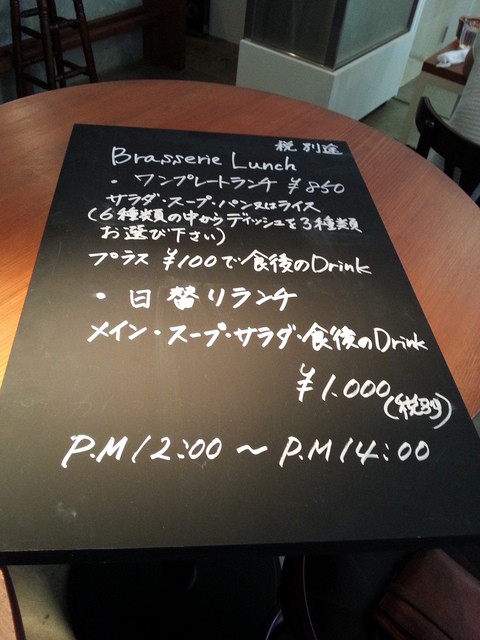 税別途
Brasserie Lunch
・ワンプレートランチ ¥850
サラダ・スープ・パン又はライス
(6種類の中からディッシュを3種類
お選び下さい)
プラス ¥100で食後のDrink
・日替りランチ
メイン・スープ・サラダ・食後のDrink
¥1.000(税別)
P.M12:00 〜 P.M14:00